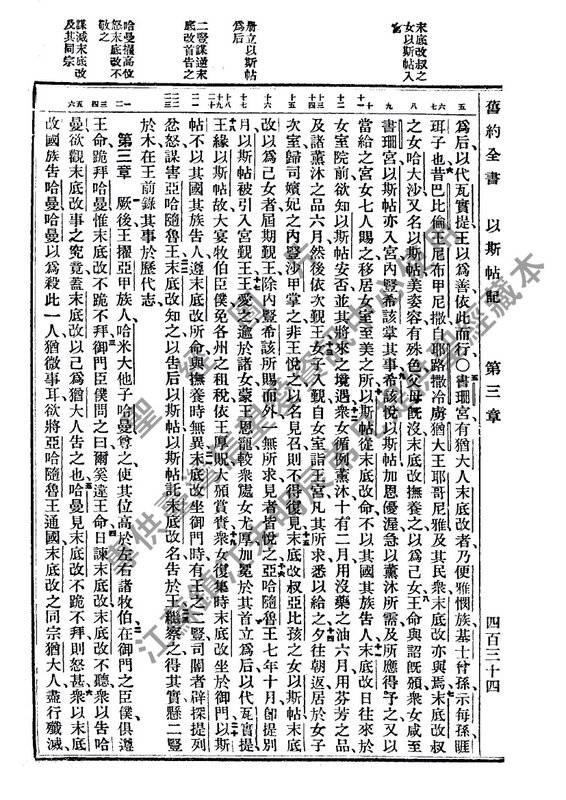 舊約全書 以斯帖記 第三章 四百三十四
末底改叔之女以斯帖入宮
册立以斯帖爲后
二豎謀逆末底改首告之
哈曼擢高位怒末底改不敬之
謀滅末底改及其同宗
爲后以代瓦實提王以爲善依此而行○書珊宮有猶大人末底改者乃便雅憫族基士曾孫示每孫睚
珥子也昔巴比倫王尼布甲尼撒自耶路撒冷虜猶大王耶哥尼雅及其民衆末底改亦與焉末底改叔
之女哈大沙又名以斯帖美姿容有殊色父母旣沒末底改撫養之以爲己女王命與詔旣頒衆女咸至
書珊宮以斯帖亦入宮內豎希該掌其事希該悅以斯帖加恩優渥急以薰沐所需及所應得予之又以
當給之宮女七人賜之移居女室至美之所以斯帖從末底改命不以其國其族告人末底改日往來於
女室院前欲知以斯帖安否並其將來之境遇衆女循例薰沐十有二月用沒藥之油六月用芬芳之品
及諸薰沐之品六月然後依次覲王女子入覲自女室詣王宮凡其所求悉以給之夕往朝返居於女子
次室歸司嬪妃之內豎沙甲掌之非王悅之以名見召則不得復見末底改叔亞比孩之女以斯帖末底
改以爲己女者屆期覲王除內豎希該所賜而外一無所求見者皆悅之亞哈隨魯王七年十月卽提別
月以斯帖被引入宮覲王王愛之逾於諸女蒙王恩寵較衆處女尤厚加冕於其首立爲后以代瓦實提
王緣以斯帖故大宴牧伯臣僕免各州之租稅依王厚貺大頒賞賚衆女復集時末底改坐於御門以斯
帖不以其國其族告人遵末底改所命與撫養時無異末底改坐御門時有王之二豎司閽者辟探提列
忿怒謀害亞哈隨魯王末底改知之以告后以斯帖以斯帖託末底改名告於王鞫察之得其實懸二豎
於木在王前錄其事於歷代志
第三章 厥後王擢亞甲族人哈米大他子哈曼尊之使其位高於左右諸牧伯在御門之臣僕俱遵
王命跪拜哈曼惟末底改不跪不拜御門臣僕問之曰爾奚違王命日諫末底改末底改不聽衆以告哈
曼欲觀末底改事之究竟蓋末底改以己爲猶大人告之也哈曼見末底改不跪不拜則怒甚衆以末底
改國族告哈曼哈曼以爲殺此一人猶微事耳欲將亞哈隨魯王通國末底改之同宗猶大人盡行殲滅